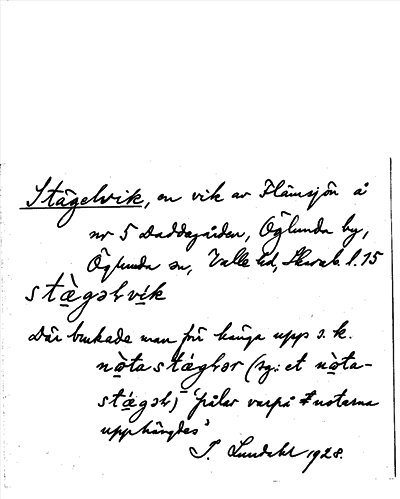 Stägelvik, en vik av Flämsjön å
nr 5 Daddagården, Öglunda by,
Öglunda sn, Valle hd, Skarab. l. 15
stä̀gəlvik
Där brukade man förr hänga upp s. k.
nò̤ta stä́gləɼ (sg: et nò̤ta-
stä́gəl) 'pålar varpå notarna
upphängdes'
I. Lundahl 1928.